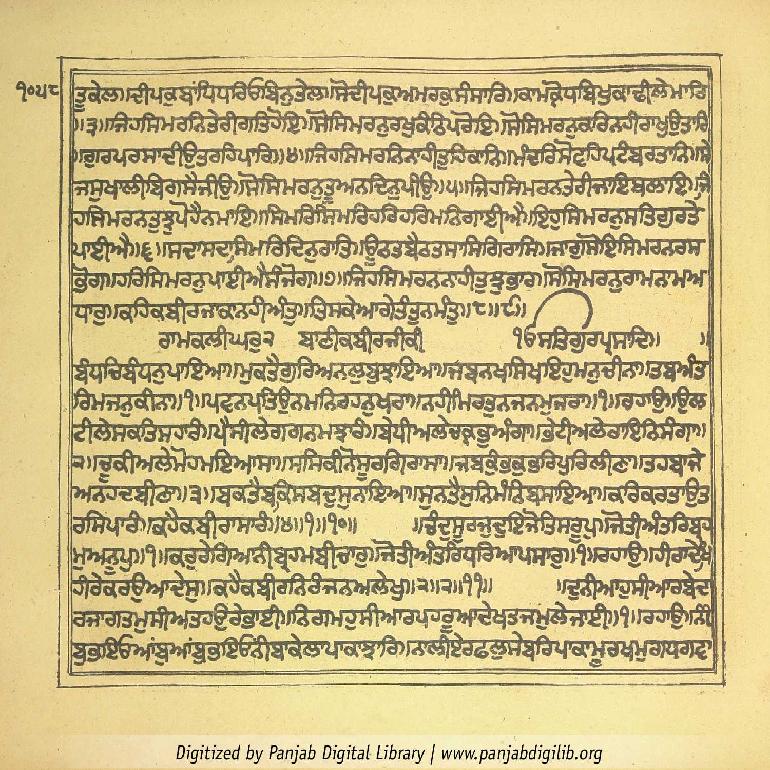 ੧੦੫੮
ਤੂਕੇਲ॥ਦੀਪਕਬਾਂਧਿਧਰਿਓਬਿਨੁਤੇਲ॥ਸੋਦੀਪਕੁਅਮਰਕੁਸੰਸਾਰਿ॥ਕਾਮਕ੍ਰੋਧਬਿਖੁਕਾਢੀਲੇਮਾਰਿ
॥੩॥ਜਿਹਸਿਮਰਨਿਤੇਰੀਗਤਿਹੋਇ॥ਸੋਸਿਮਰਨੁਰਖੁਕੰਠਿਪਰੋਇ॥ਸੋਸਿਮਰਨੁਕਰਿਨਹੀਰਾਖੁਉਤਾਰਿ
॥ਗੁਰਪਰਸਾਦੀਉਤਰਹਿਪਾਰਿ॥੪॥ਜਿਹਸਿਮਰਨਿਨਾਹੀਤੁਹਿਕਾਨਿ॥ਮੰਦਰਿਸੋਵਹਿਪਟੰਬਰਤਾਨਿ॥ਸੇ
ਜਸੁਖਾਲੀਬਿਗਸੈਜੀਉ॥ਸੋਸਿਮਰਨੁਤੂਅਨਦਿਨੁਪੀਉ॥੫॥ਜਿਹਸਿਮਰਨਤੇਰੀਜਾਇਬਲਾਇ॥ਜਿ
ਹਸਿਮਰਨਤੁਝੁਪੋਹੈਨਮਾਇ॥ਸਿਮਰਿਸਿਮਰਿਹਰਿਹਰਿਮਨਿਗਾਈਐ॥ਇਹੁਸਿਮਰਨੁਸਤਿਗੁਰਤੇ
ਪਾਈਐ॥੬॥ਸਦਾਸਦਾਸਿਮਰਿਦਿਨੁਰਾਤਿ॥ਊਠਤਬੈਠਤਸਾਸਿਗਿਰਾਸਿ॥ਜਾਗੁਸੋਇਸਿਮਰਨਰਸ
ਭੋਗ॥ਹਰਿਸਿਮਰਨੁਪਾਈਐਸੰਜੋਗ॥੭॥ਜਿਹਸਿਮਰਨਨਾਹੀਤੁਝੁਭਾਰ॥ਸੋਸਿਮਰਨੁਰਾਮਨਾਮਅ
ਧਾਰੁ॥ਕਹਿਕਬੀਰਜਾਕਾਨਹੀਅੰਤੁ॥ਤਿਸਕੇਆਗੇਤੰਤੁਨਮੰਤੁ॥੮॥੯॥
ਰਾਮਕਲੀਘਰੁ੨ ਬਾਣੀਕਬੀਰਜੀਕੀ ੴਸਤਿਗੁਰਪ੍ਰਸਾਦਿ॥ ॥
ਬੰਧਚਿਬੰਧਨੁਪਾਇਆ॥ਮੁਕਤੈਗੁਰਿਅਨਲੁਬੁਝਾਇਆ॥ਜਬਨਖਸਿਖਇਹੁਮਨੁਚੀਨਾ॥ਤਬਅੰਤ
ਰਿਮਜਨੁਕੀਨਾ॥੧॥ਪਵਨਪਤਿਉਨਮਨਿਰਹਨੁਖਰਾ॥ਨਹੀਮਿਰਤੁਨਜਨਮੁਜਰਾ॥੧॥ਰਹਾਉ॥ਉਲ
ਟੀਲੇਸਕਤਿਸਹਾਰੰ॥ਪੈਸੀਲੇਗਗਨਮਝਾਰੰ॥ਬੇਧੀਅਲੇਚਕ੍ਰਭੁਅੰਗਾ॥ਭੇਟੀਅਲੇਰਾਇਨਿਸੰਗਾ॥
੨॥ਚੂਕੀਅਲੇਮੋਹਮਇਆਸਾ॥ਸਸਿਕੀਨੋਸੂਰਗਿਰਾਸਾ॥ਜਬਕੁੰਭਕੁਭਰਿਪੁਰਿਲੀਣਾ॥ਤਹਬਾਜੇ
ਅਨਹਦਬੀਣਾ॥੩॥ਬਕਤੈਬਕਿਸਬਦੁਸੁਨਾਇਆ॥ਸੁਨਤੈਸੁਨਿਮੰਨਿਬਸਾਇਆ॥ਕਰਿਕਰਤਾਉਤ
ਰਸਿਪਾਰੰ॥ਕਹੈਕਬੀਰਾਸਾਰੰ॥੪॥੧॥੧੦॥ ॥ਚੰਦੁਸੂਰਜੁਦੁਇਜੋਤਿਸਰੂਪੁ॥ਜੋਤੀਅੰਤਰਿਬ੍ਰਹ
ਮੁਅਨੂਪੁ॥੧॥ਕਰੁਰੇਗਿਆਨੀਬ੍ਰਹਮਬੀਚਾਰੁ॥ਜੋਤੀਅੰਤਰਿਧਰਿਆਪਸਾਰੁ॥੧॥ਰਹਾਉ॥ਹੀਰਾਦੇਖਿ
ਹੀਰੇਕਰਉਆਦੇਸੁ॥ਕਹੈਕਬੀਰਨਿਰੰਜਨਅਲੇਖੁ॥੨॥੨॥੧੧॥ ॥ਦੁਨੀਆਹੁਸੀਆਰਬੇਦਾ
ਰਜਾਗਤਮੁਸੀਅਤਹਉਰੇਭਾਈ॥ਨਿਗਮਹੁਸੀਆਰਪਹਰੂਆਦੇਖਤਜਮੁਲੇਜਾਈ॥੧॥ਰਹਾਉ॥ਨੀਂ
ਬੁਭਇਓਆਂਬੁਆਂਬੁਭਇਓਨੀਂਬਾਕੇਲਾਪਾਕਾਝਾਰਿ॥ਨਾਲੀਏਰਫਲੁਸੇਬਰਿਪਾਕਾਮੂਰਖਮੁਗਧਗਵਾ
Digitized by Panjab Digital Library | www.panjabdigilib.org